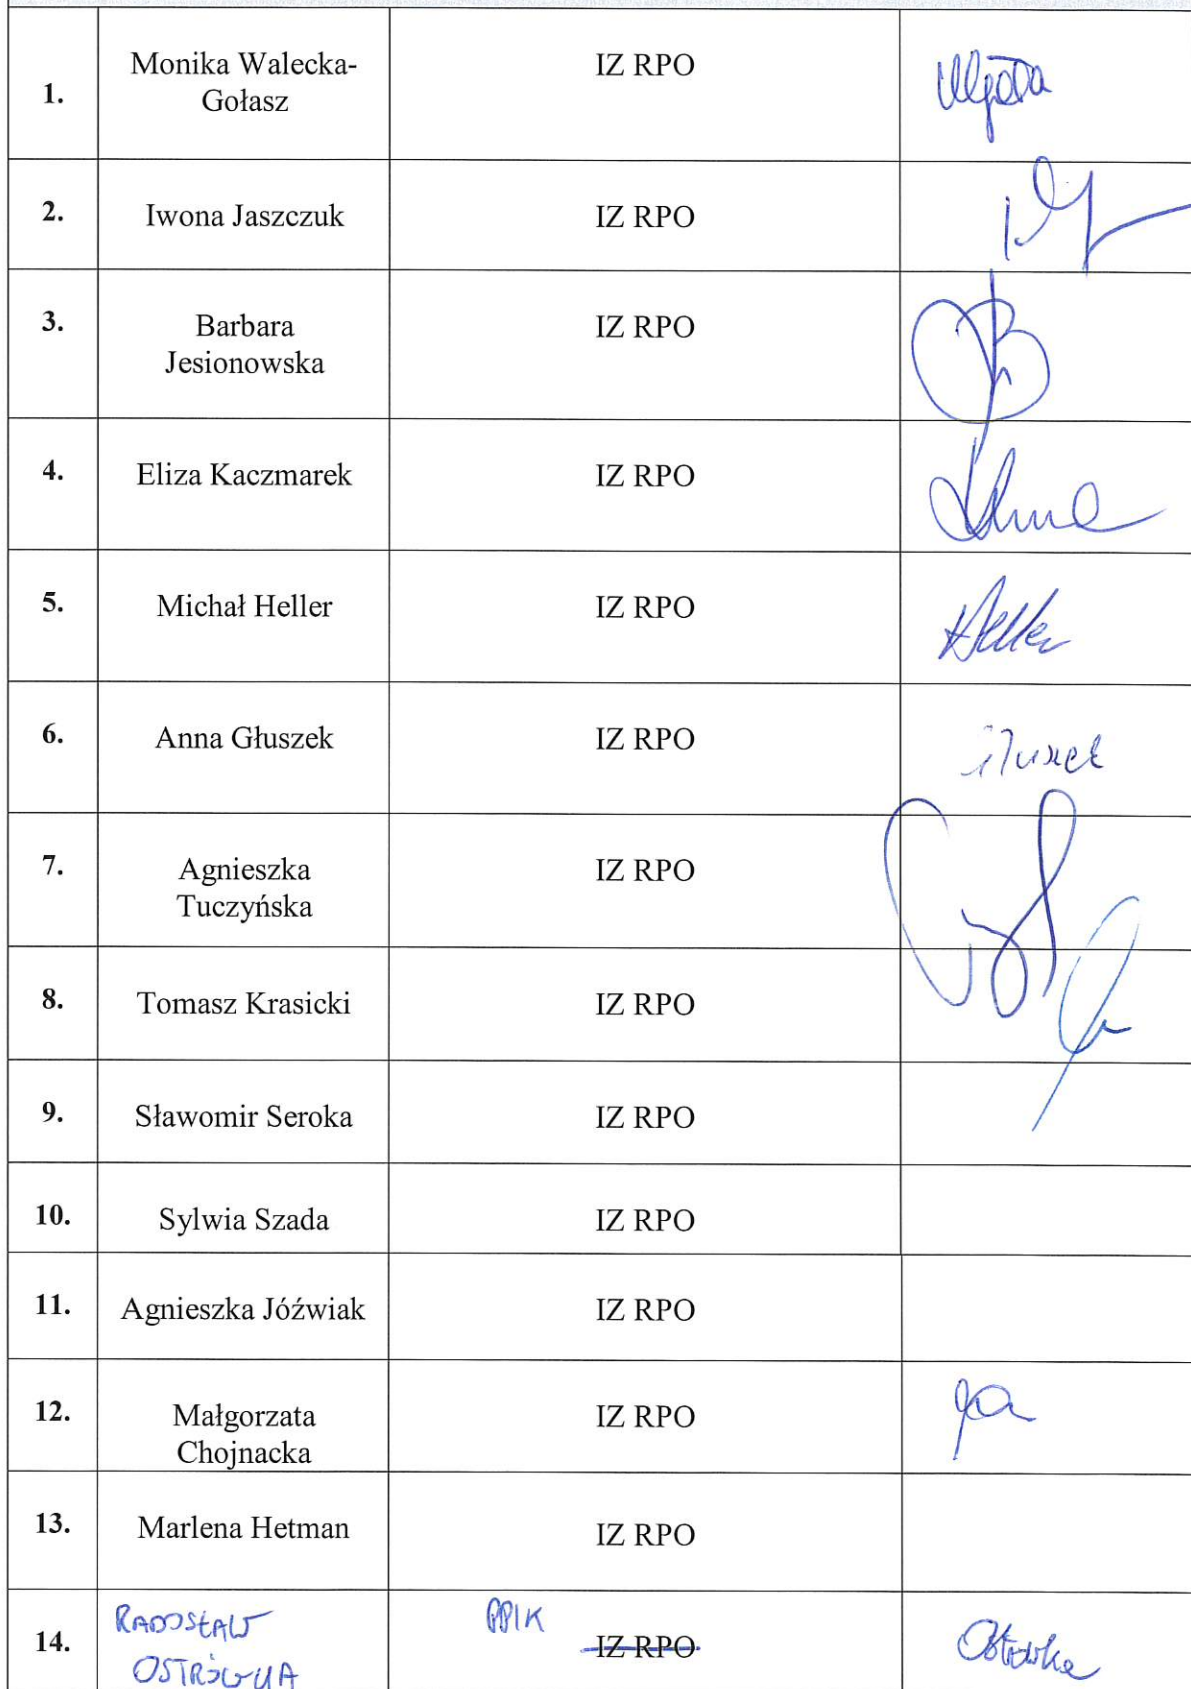 1. Monika Walecka- IZ RPO
Gołasz
2. Iwona Jaszczuk IZ RPO
3. Barbara IZ RPO
Jesionowska
4. Eliza Kaczmarek IZ RPO
5. Michał Heller IZ RPO Heller
6. Anna Głuszek IZ RPO
7. Agnieszka IZ RPO
Tuczyńska
8. Tomasz Krasicki IZ RPO
9. Sławomir Seroka IZ RPO
10. Sylwia Szada IZ RPO
11. Agnieszka Jóźwiak IZ RPO
12. Małgorzata IZ RPO
Chojnacka
13. Marlena Hetman IZ RPO
14. RADOSŁAW IZ RPO
OSTRÓWKA